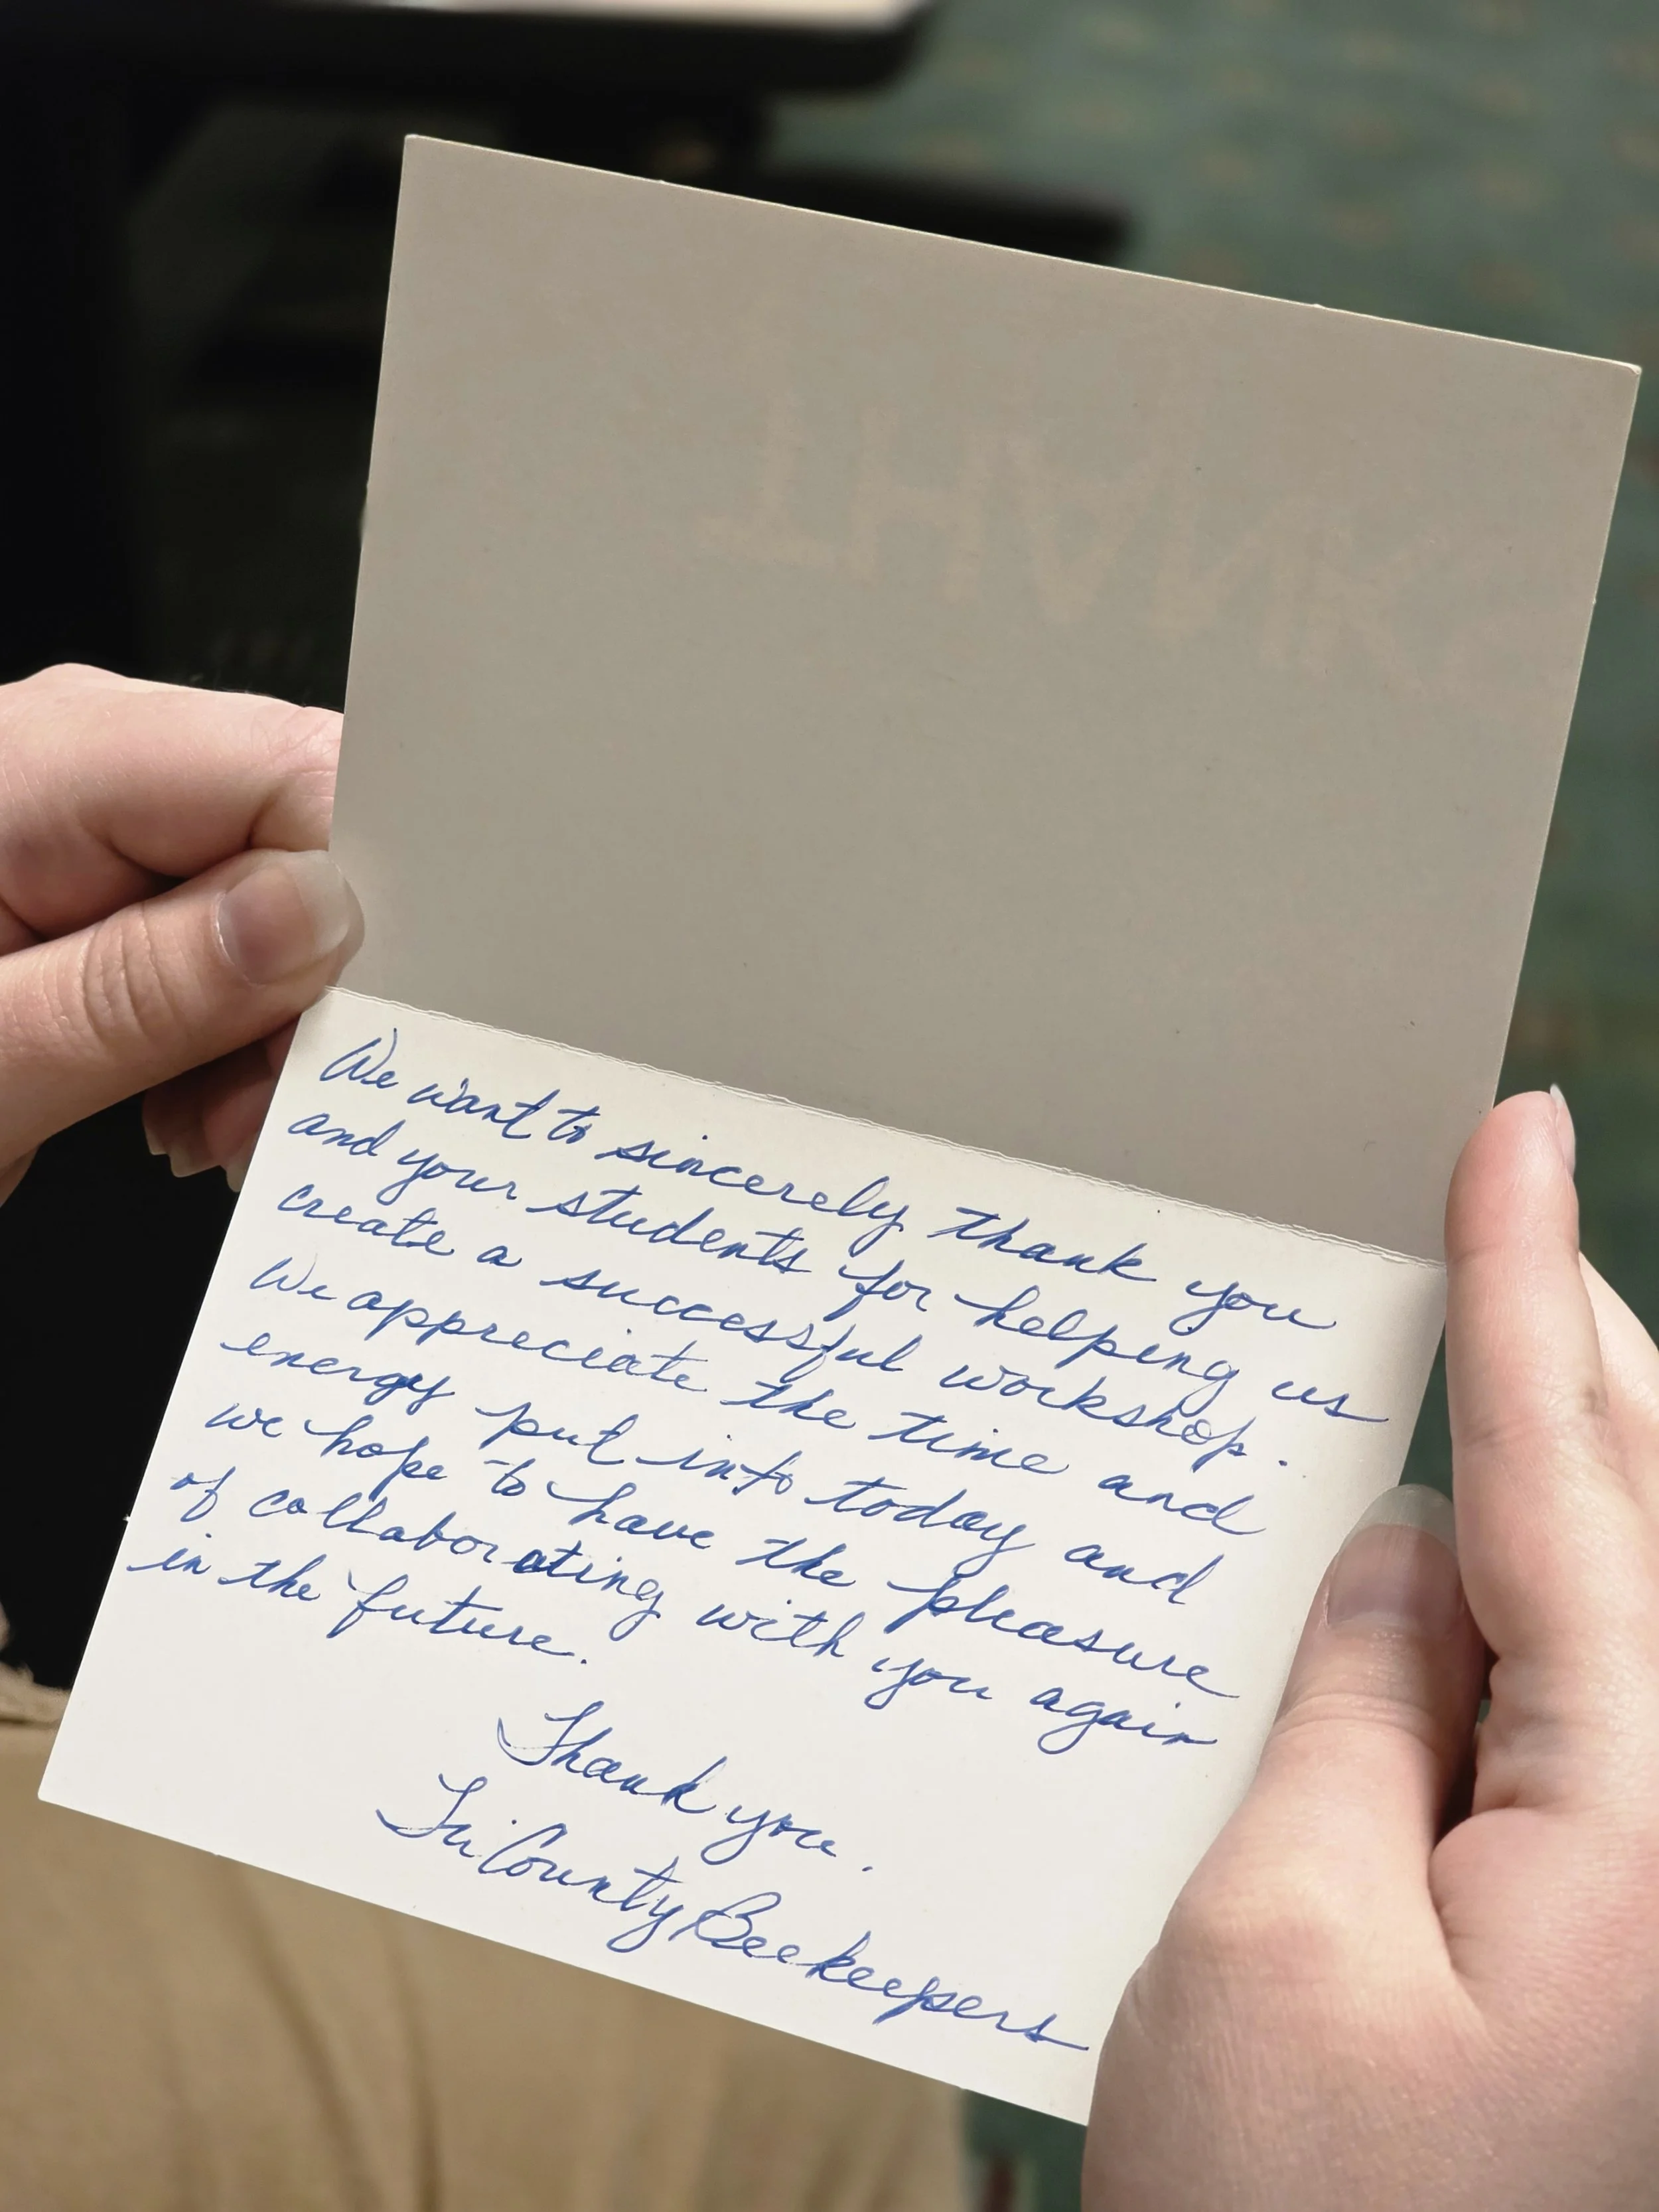 We want to sincerely thank you
and your students for helping us
create a successful workshop.
We appreciate the time and
energy put into today and
we hope to have the pleasure
of collaborating with you again
in the future.
Thank you.
Tri County Beekeepers